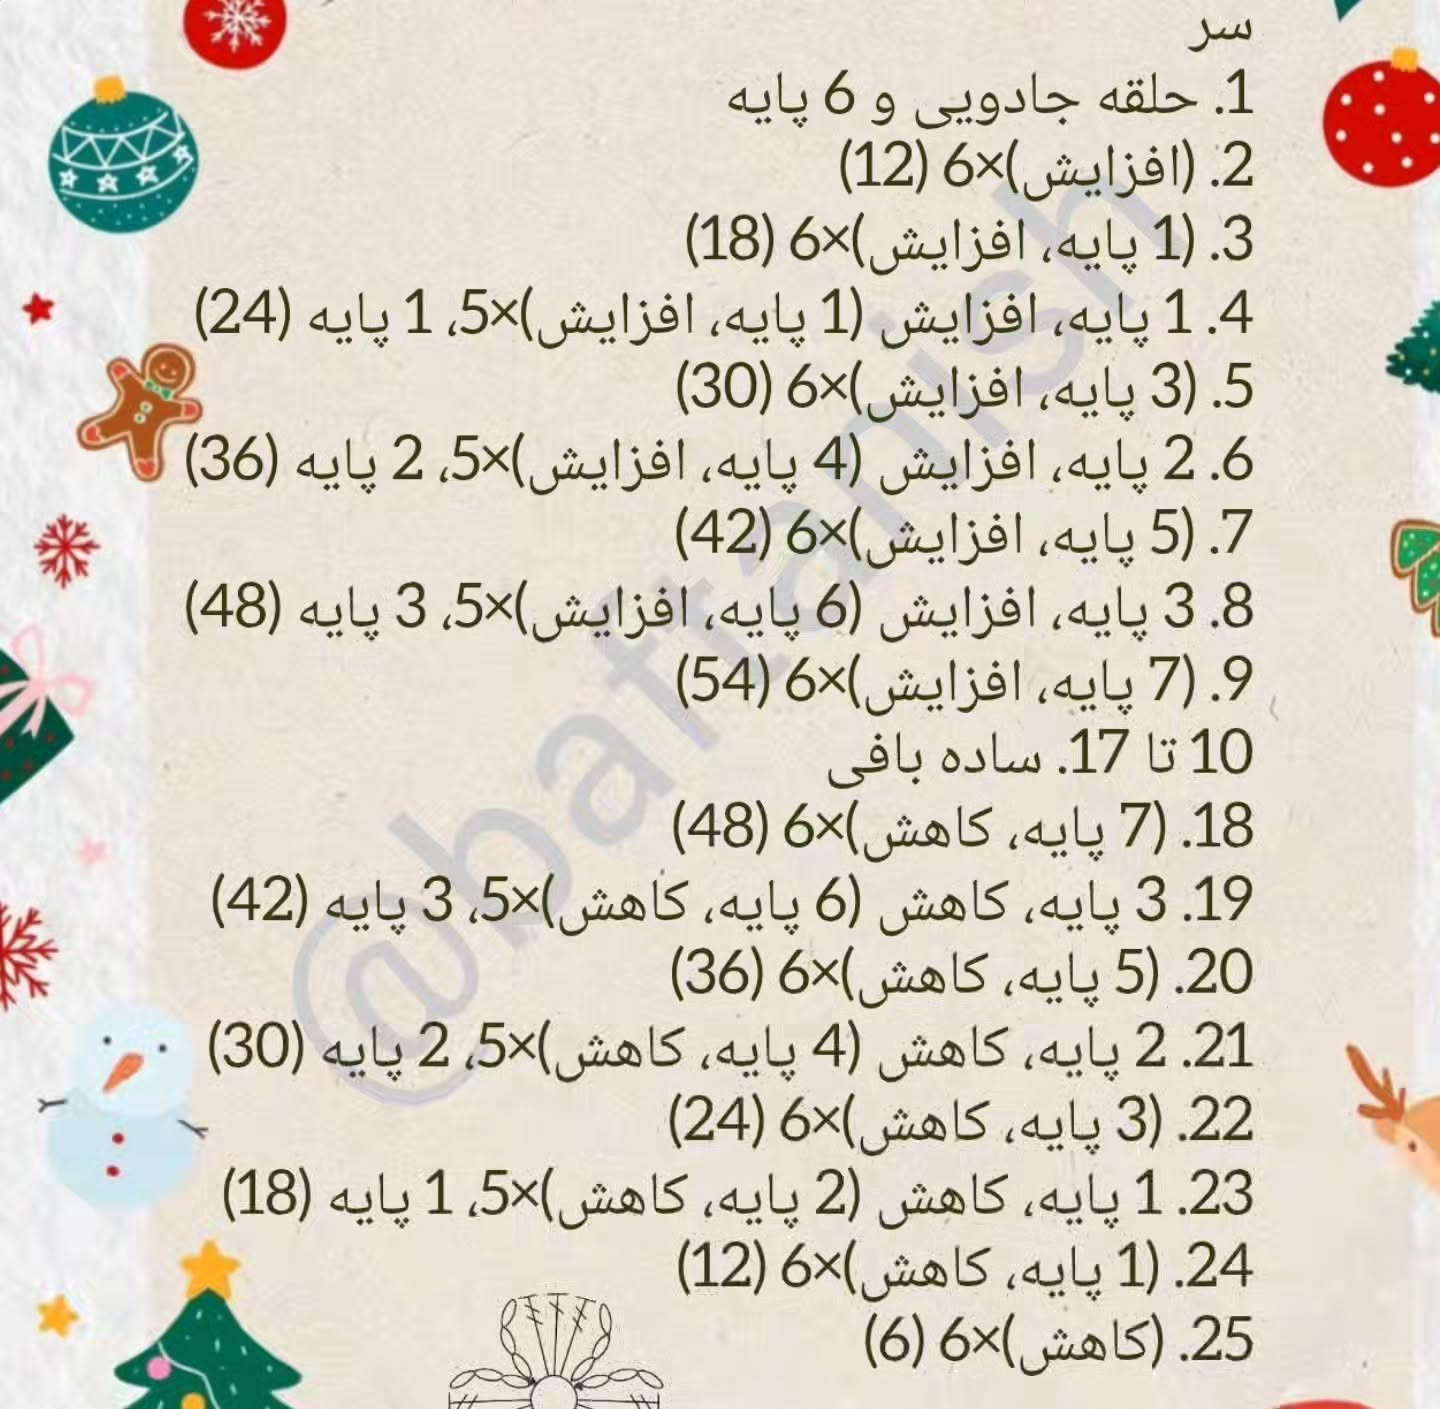 سر
1. حلقه جادویی و 6 پایه
2. (افزایش)×6 (12)
3. (1 پایه، افزایش)×6 (18)
4. 1 پایه، افزایش (1 پایه، افزایش)×5، 1 پایه (24)
5. (3 پایه، افزایش)×6 (30)
6. 2 پایه، افزایش (4 پایه، افزایش)×5، 2 پایه (36)
7. (5 پایه، افزایش)×6 (42)
8. 3 پایه، افزایش (6 پایه، افزایش)×5، 3 پایه (48)
9. (7 پایه، افزایش)×6 (54)
10 تا 17. ساده بافی
18. (7 پایه، کاهش)×6 (48)
19. 3 پایه، کاهش (6 پایه، کاهش)×5، 3 پایه (42)
20. (5 پایه، کاهش)×6 (36)
21. 2 پایه، کاهش (4 پایه، کاهش)×5، 2 پایه (30)
22. (3 پایه، کاهش)×6 (24)
23. 1 پایه، کاهش (2 پایه، کاهش)×5، 1 پایه (18)
24. (1 پایه، کاهش)×6 (12)
25. (کاهش)×6 (6)
@baftanish